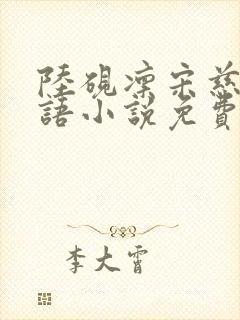 陸硯凜宋慈
語小說免費
李大霄